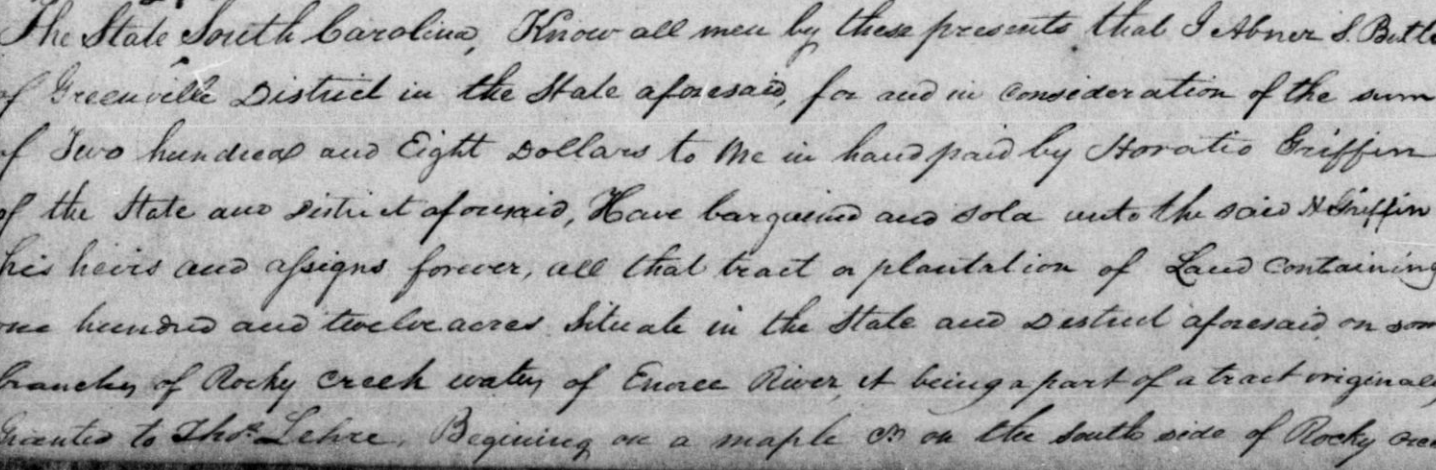 The State South Carolina, Know all men by these presents that I Abner S. Butl
of Greenville District in the State aforesaid, for and in consideration of the sum
of Two hundred and Eight Dollars to Me in hand paid by Horatio Griffin
of the State and District aforesaid, Have bargained and sold unto the said H Griffin
his heirs and assigns forever, all that tract or plantation of Land containing
one hundred and twelve acres Situate in the State and District aforesaid on som
branches of Rocky Creek waters of Enoree River, it being a part of a tract original
Granted to Thos. Lehre, Begining on a maple on the south side of Rocky cree